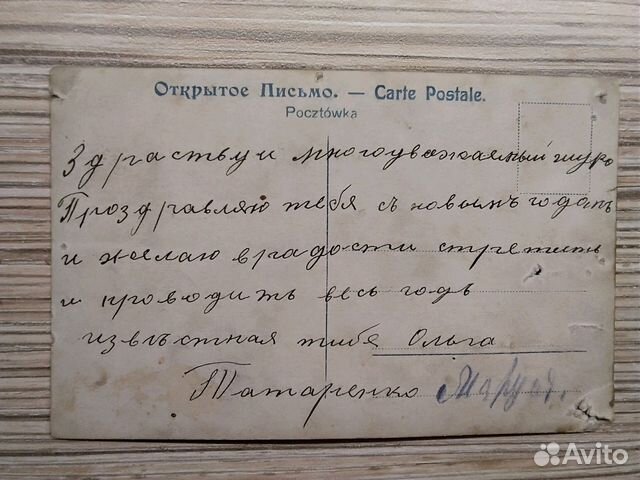 Открытое Письмо. — Carte Postale.
Pocztówka
Здраствуи многоуважаемый шура
Проздравляю тебя съ новымъ годомъ
и желаю врадости стретить
и проводить весь годъ
извѣстная тибе Ольга
Татаренко
Avito